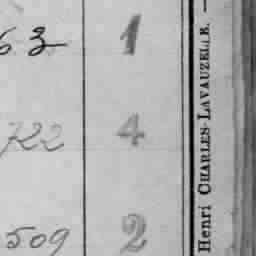 63 1
722 4
509 2
Henri CHARLES-LAVAUZELLE. —